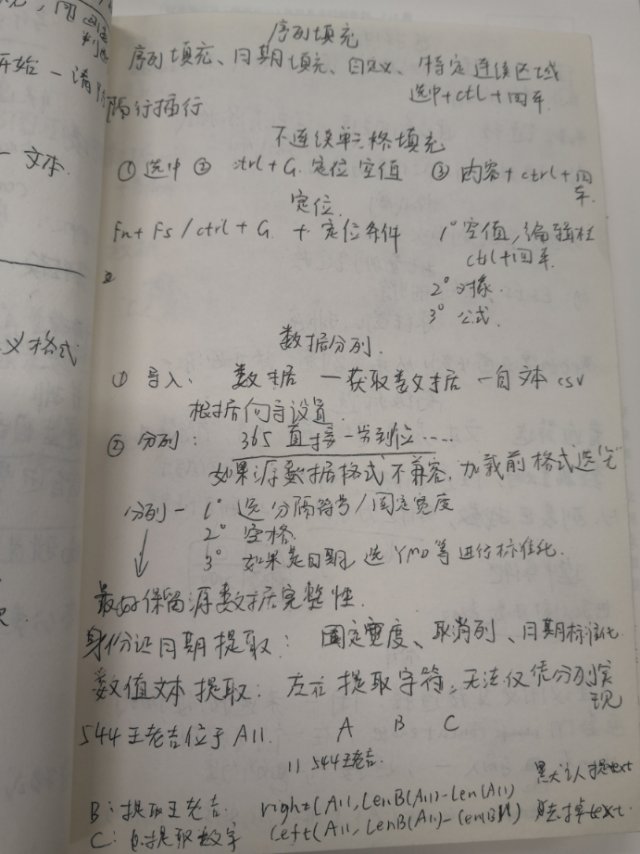 开始一请
一文本.
义格式
序列填充
序列填充、日期填充、自定义、特定连续区域
选中+ctl+回车.
隔行插行
不连续单元格填充
①选中 ② ctrl+G 定位空值 ③ 内容+ctrl+回车.
定位.
Fn+F5/ctrl+G + 定位条件 1° 空值,编辑栏
ctl+回车.
2° 对象.
3° 公式.
数据分列.
① 导入、 数据 一获取数据 一自文本csv
根据向导设置.
② 分列: 365 直接一步到位.....
如果源数据格式不兼容,加载前格式选"它"
分列一 1° 选分隔符号/固定宽度
2° 空格.
3° 如果是日期,选YMD等进行标准化.
最好保留源数据完整性.
身份证日期提取: 固定宽度、取消列、日期标准化
数值文本提取: 左右提取字符,无法仅凭分列实现
544王老吉位于A11. A B C
11 544王老吉.
默认提text
B:提取王老吉. right(A11,LenB(A11)-Len(A11)
C: 提取数字 left(A11, LenB(A11)- 掉text.